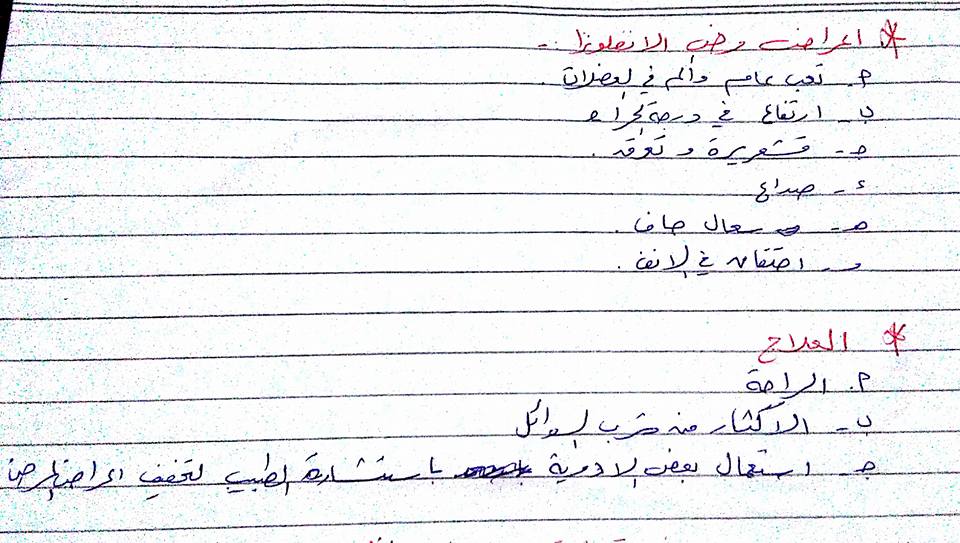 * اعراض مرض الانفلونزا :-
م. تعب عام وألم في العضلات .
ب- ارتفاع في درجة الحرارة
جـ- قشعريرة و تعرق .
ء- صداع
هـ- سعال جاف .
و- احتقان في الانف .
* العلاج
م. الراحة
ب- الاكثار من شرب السوائل
جـ- استعمال بعض الادوية باستشارة الطبيب لتخفيف اعراض المرض